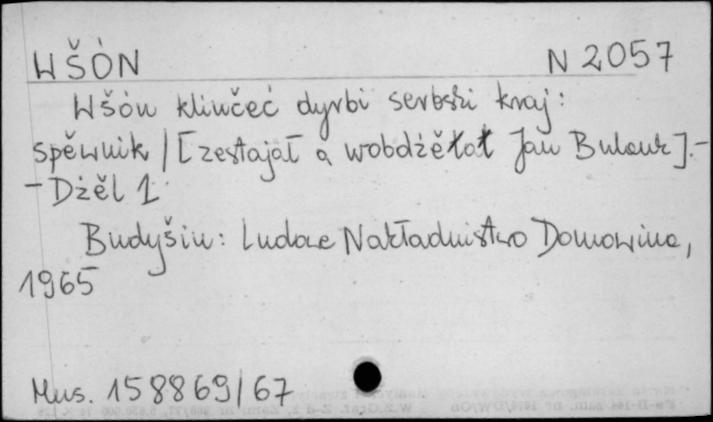 WŠÓN N 2057
Wšón klinčeć dyrbi serbski kraj:
spěwnik / [zestajał a wobdźěłał Jan Bulank].-
- Dźěl 1
Budyšin: Ludowe Nakładnistwo Domowina,
1965
Mus. 158869/67